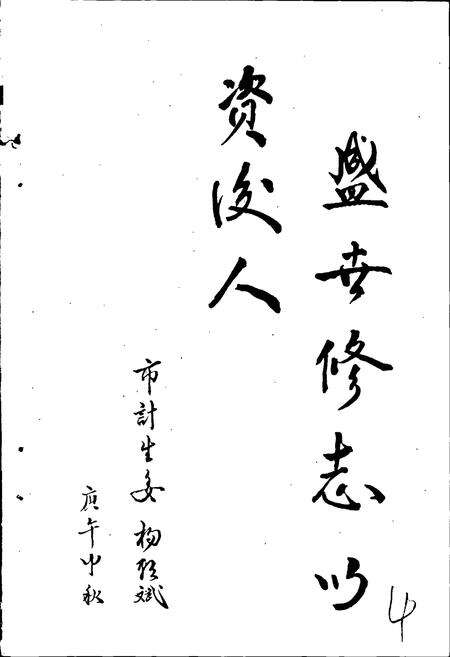 盛世修志以
资後人
市計生委 楊 斌
庚午中秋
4